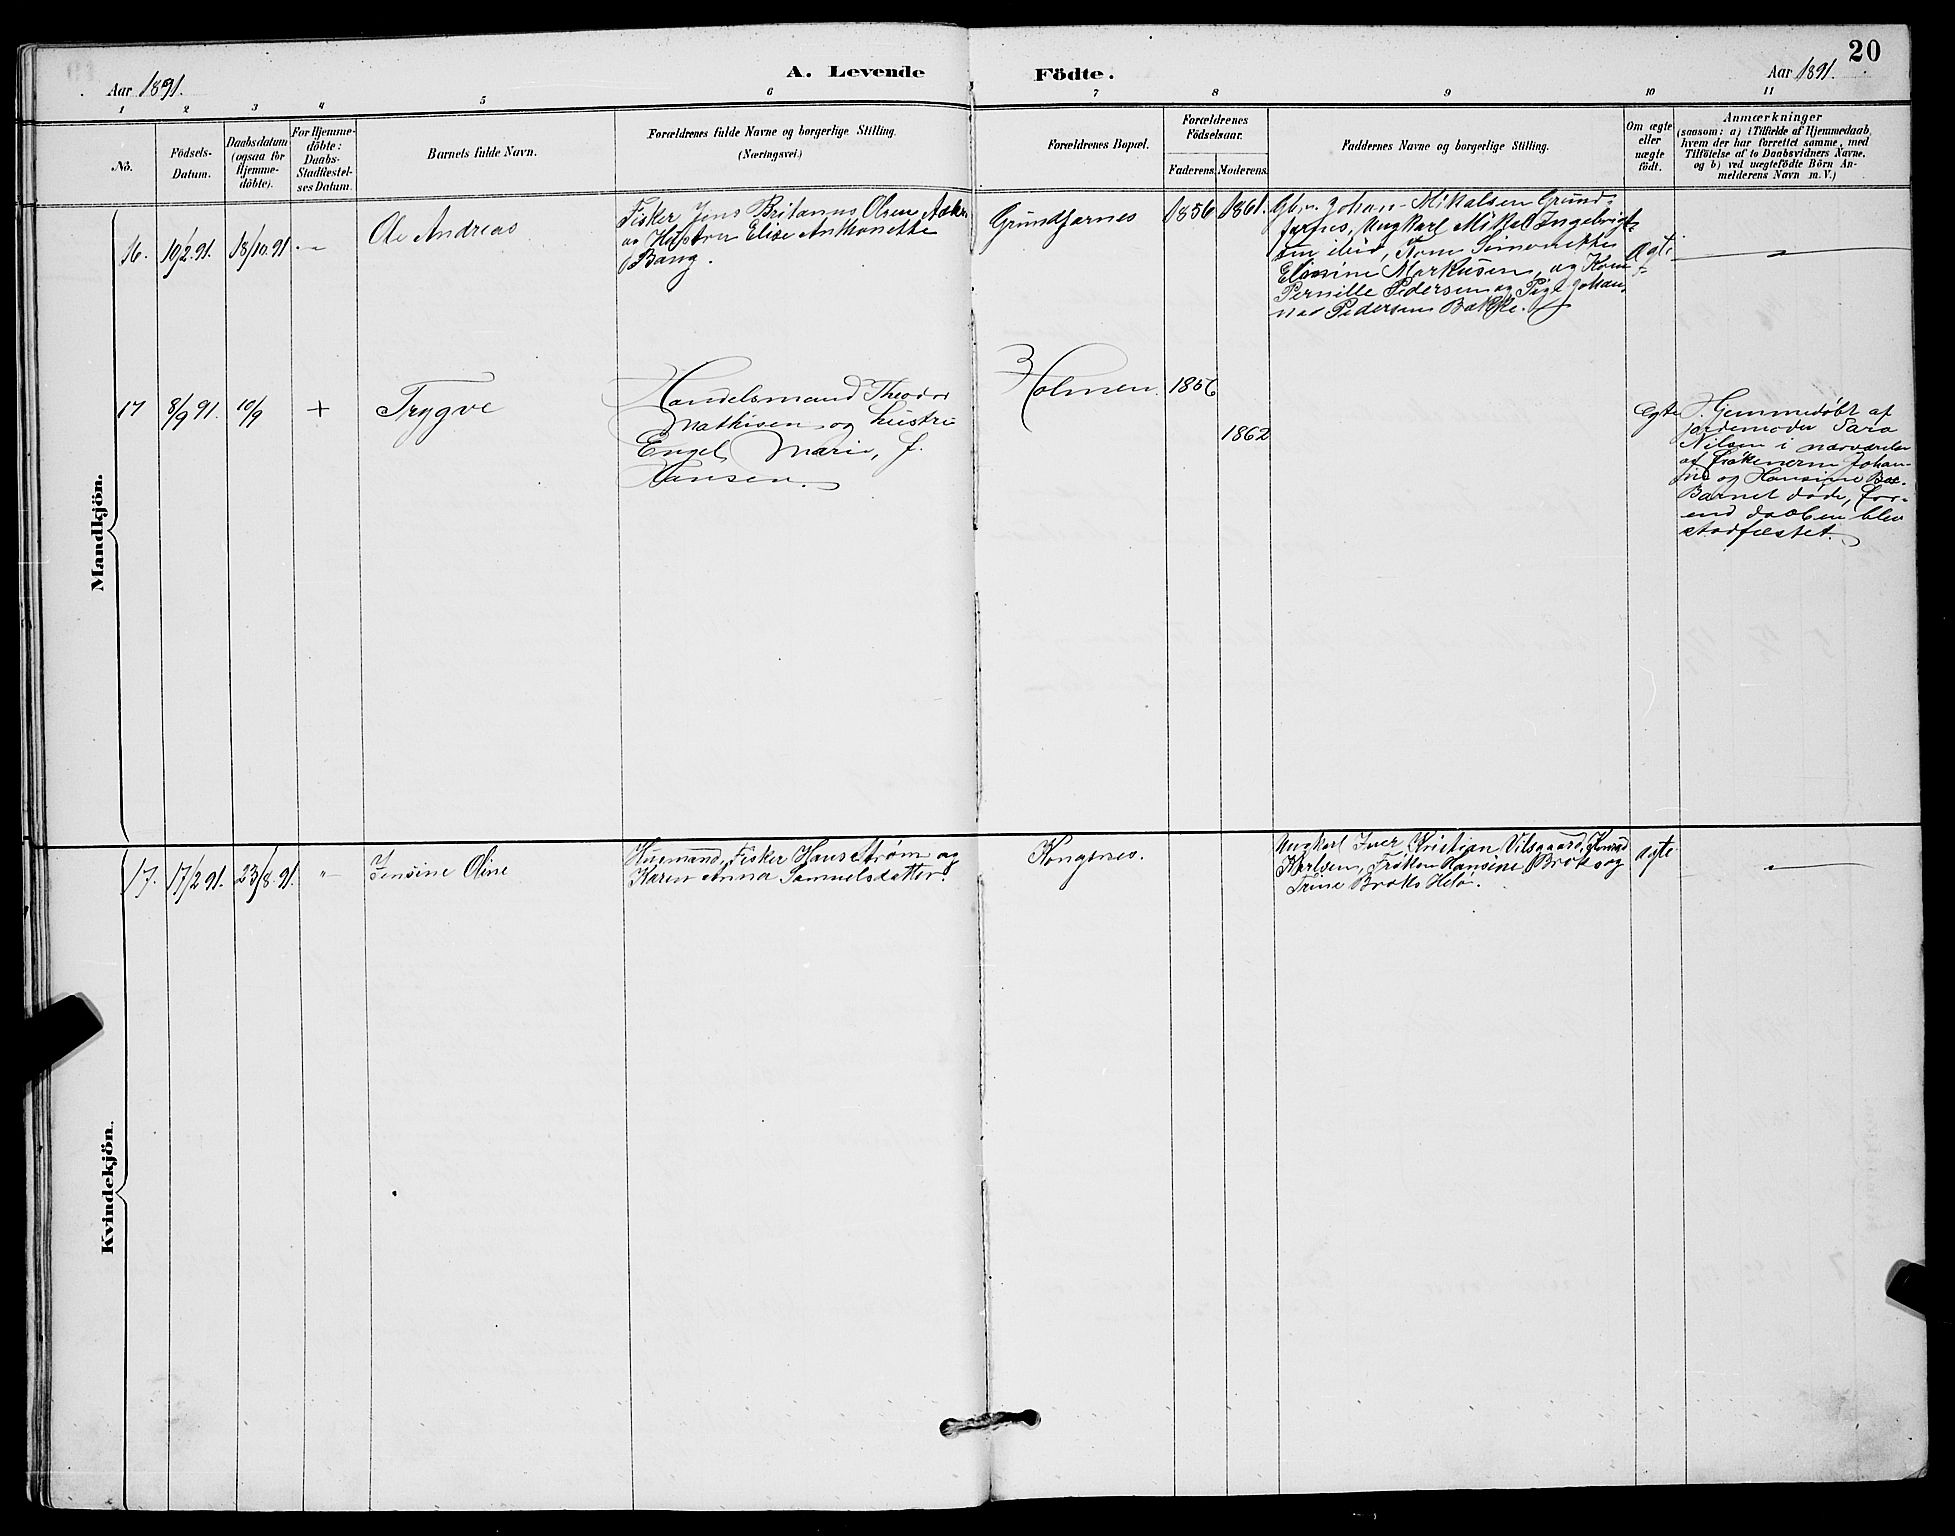 20
Aar 1891.
A. Levende Födte.
Aar 1891.
1 2 3 4 5 6 7 8 9 10 11
No.
Födsels-
Datum.
Daabsdatum
(ogsaa for
Hjemme-
döbte).
For Hjemme-
döbte:
Daabs-
Stadfæstel-
ses Datum.
Barnets fulde Navn.
Forældrenes fulde Navne og borgerlige Stilling.
(Næringsvei.)
Forældrenes Bopæl.
Forældrenes
Födselsaar.
Faderens. Moderens.
Faddernes Navne og borgerlige Stilling.
Om ægte
eller
uægte
födt.
Anmærkninger
(saasom: a) i Tilfælde af Hjemmedaab,
hvem der har forrettet samme, med
Tilföielse af to Daabsvidners Navne,
og b) ved uægtefödte Börn An-
melderens Navn m. V.)
Mandkjön.
16. 10/2 91. 18/10 91. — Ole Andreas
Fisker Jens Britanus Olsen
og Hustru Elise Anthonette
Bang.
Grundfarnes 1856 1861.
Gbr. Johan Mikalsen Grund-
farnes, Ungkarl Mikal Ingebrigt-
sen ibid, Kone Simonette
Elessine Markusen, og Kone
Pernille Pedersen og Pige Johan-
na Pedersen Bakke.
Ægte
—
17 8/9 91. 10/9 + Trygve
Handelsmand Theodor
Mathisen og hustru
Engel Marie, f.
Hansen.
Holmen. 1856
1862
Egte
Hjemmedøbt af
jordemoder Sara
Nilsen i nærværelse
af frøkenerne Johan-
ne og Hansine Boe.
Barnet døde, før-
end daaben blev
stadfæstet.
Kvindekjön.
17. 17/2 91. 23/8 91. " Jensine Oline
Husmand, Fisker Hans Strøm og
Karen Anna Samuelsdatter.
Kongsnes.
Ungkarl Iver Kristian Vilsgaard, Konrad
Karlsen, Frøken Hansine Broks og
Trine Broks Helø.
Ægte
—